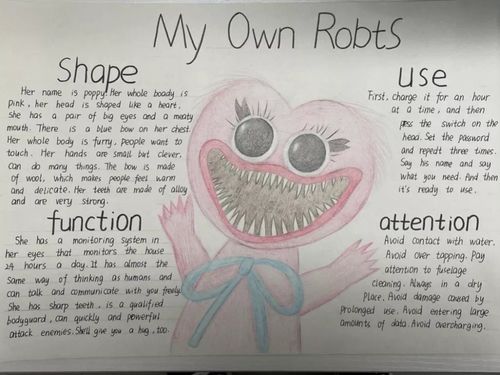 My Own Robts
Shape
Her name is poppy. Her whole boady is
Pink, her head is shaped like a heart.
She has a pair of big eyes and a meaty
mouth. There is a blue bow on her chest.
Her whole body is furry, people want to
touch. Her hands are small but clever,
can do many things. The bow is made
of wool, which makes people feel warm
and delicate. Her teeth are made of alloy
and are very strong.
use
First, charge it for an hour
at a time, and then
press the switch on the
head. Set the password
and repedt three times.
Say his name and say
what you need. And then
it's ready to use.
function
She has a monitoring system in
her eyes that monitors the house
24 hours a day. It has almost the
Same way of thinking as humans and
can talk and communicate with you freely.
She has sharp teeth, is a qualified
bodyguard, can quickly and powerful
attack enemies. She'll give you a hug, too.
attention
Avoid contact with water.
Avoid over topping. Pay
attention to fuselage
cleaning. Always in a dry
Place. Avoid damage caused by
Prolonged use. Avoid entering large
amounts of data. Avoid overcharging.